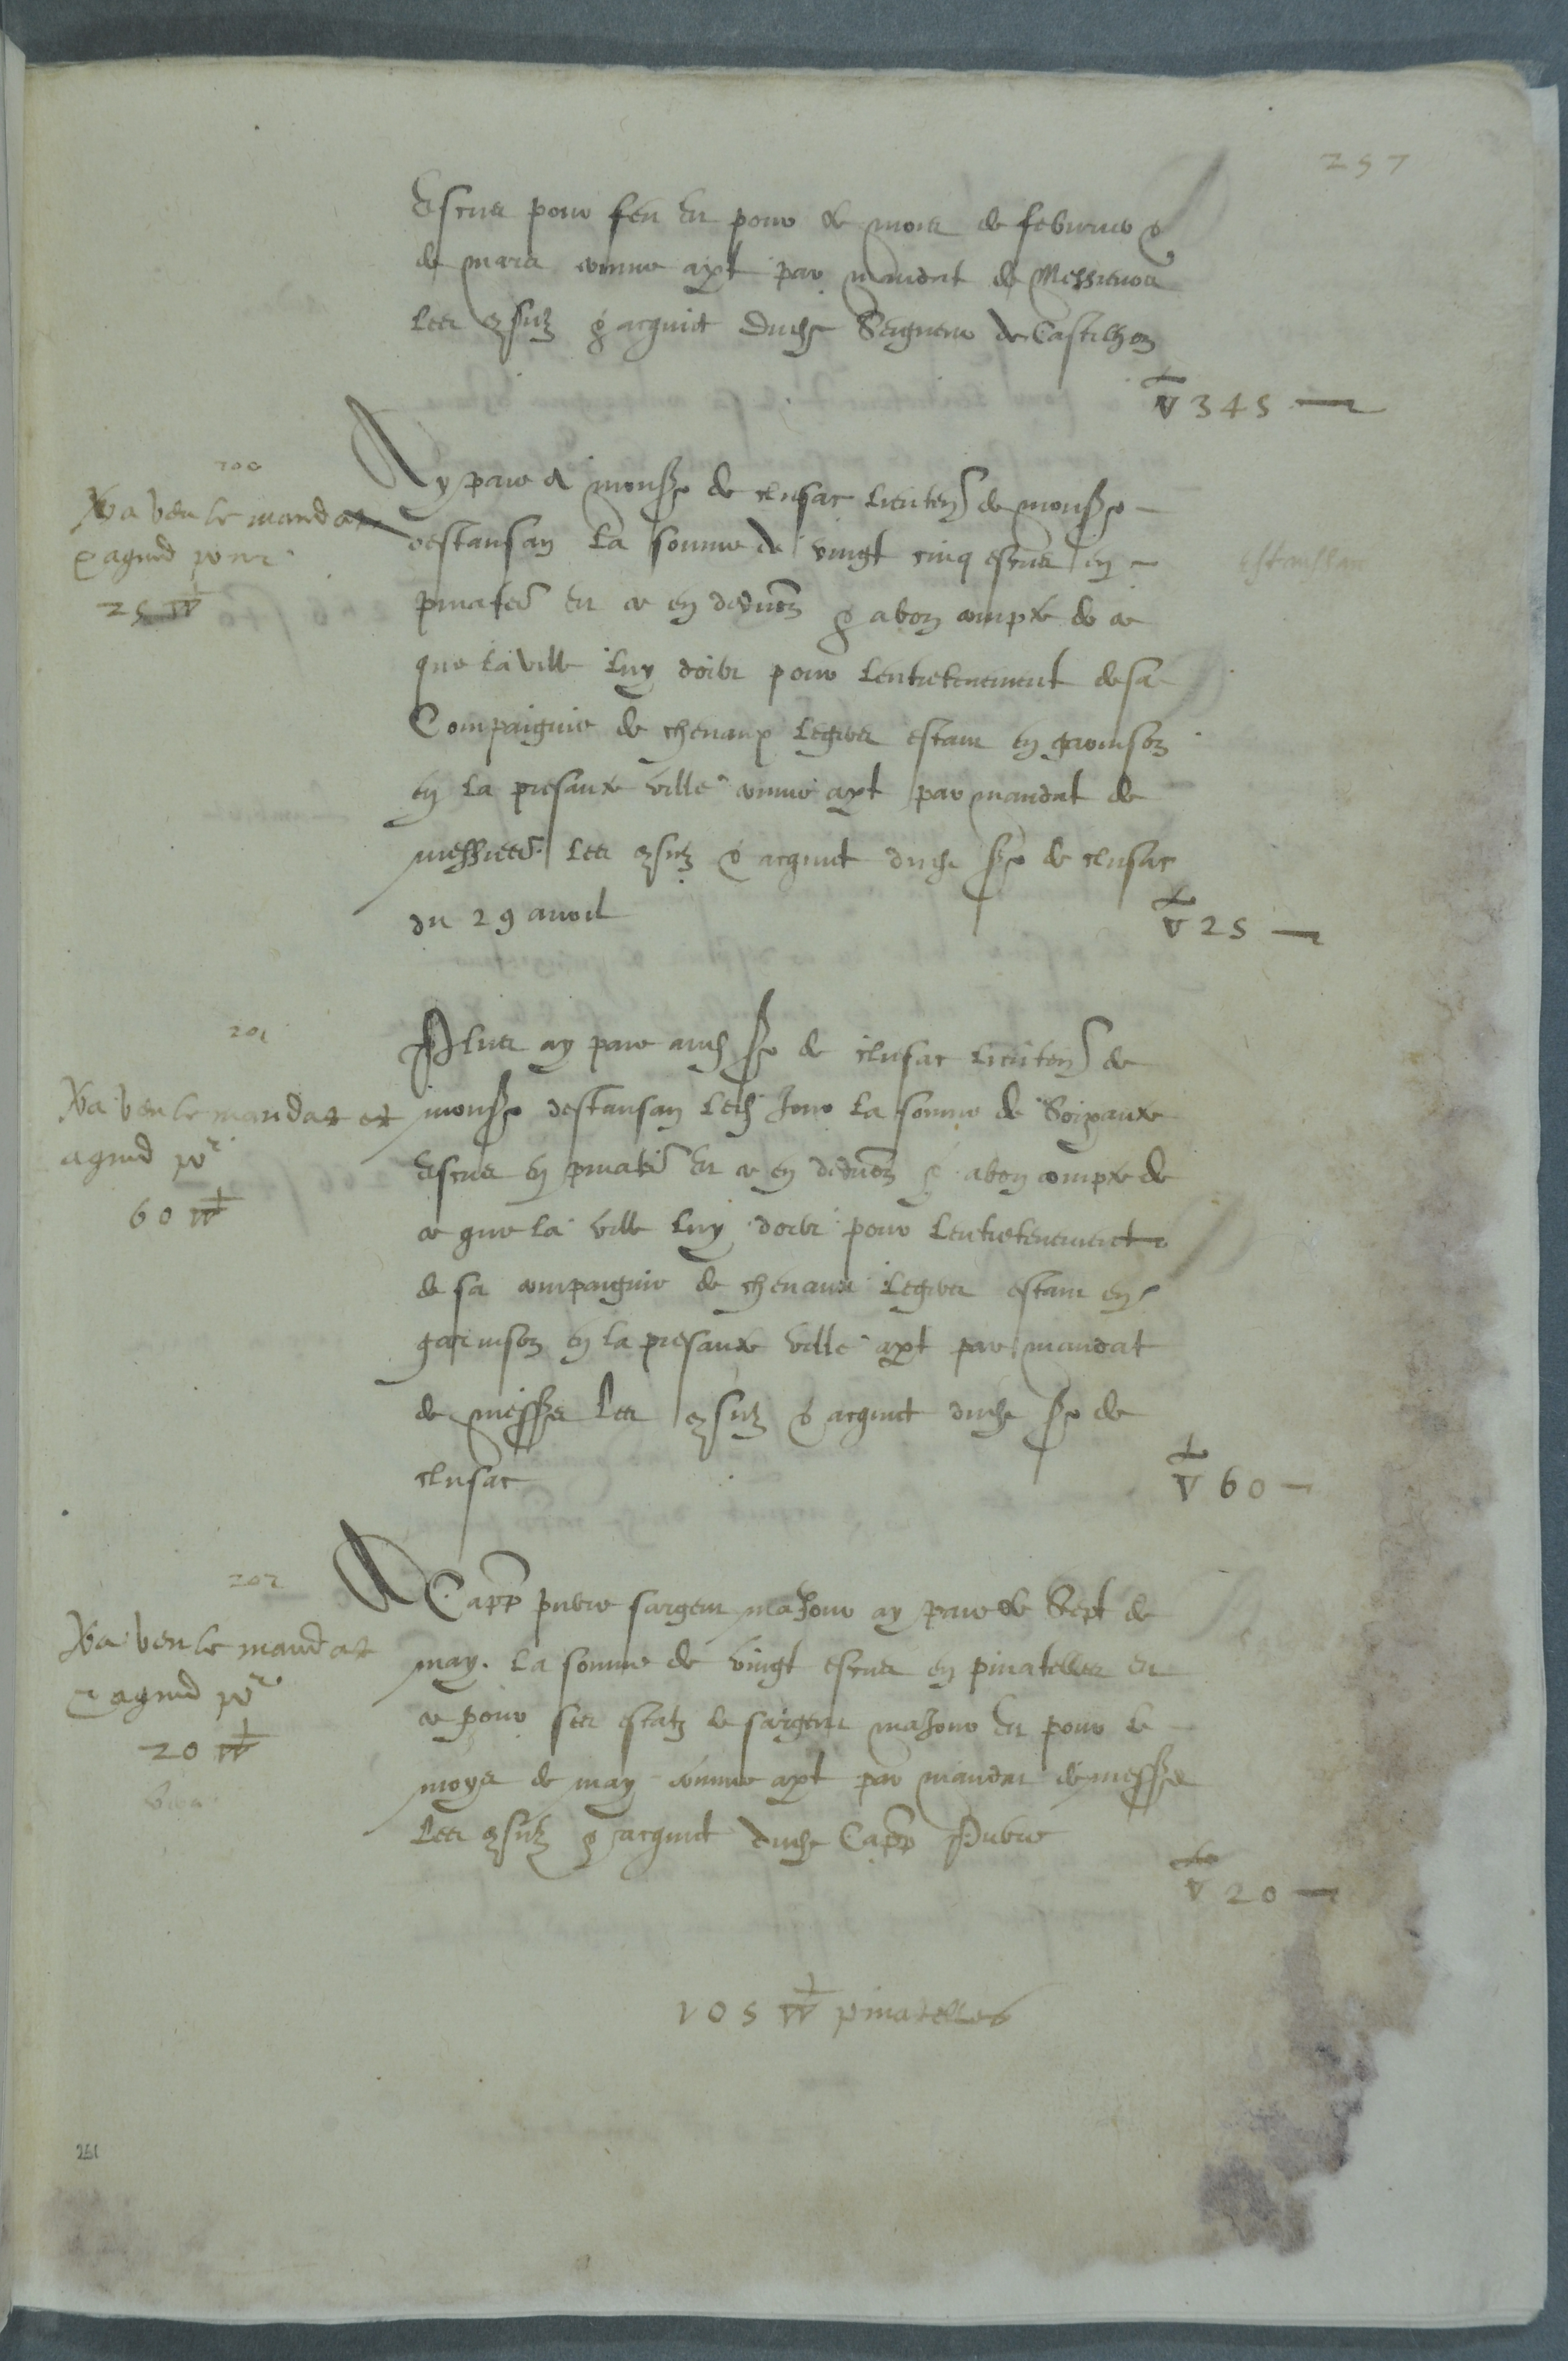 257
Escus pour feu Et pour le mois de febvrier &
de mars comme apt par mandat de Messieurs
Les 9sulz & acquict dudt Seigneur de Castilhon
▽ 345
200
Va veu le mandat
& aquid pour
25 ▽
Ay paie A monsr de clusac lieuten de monsr
destansan La somme de vingt cinq escus en
pinatel Et ce en deduon & a bon compte de ce
que la ville luy doibt pour lentretenement de sa
Compaignie de chevaux legiers estant en garnison
en la presante ville comme apt par mandat de
messieurs Les 9sulz & acquict dudt sr de clusac
du 29 avril
▽ 25
estanssan
201
Va veu le mandat et
aquid pr
60 ▽
Plus ay paie audt sr de clusac lieuten de
monsr destansan ledt Jour la somme de Soixante
Escus en pinatel Et ce en deduon & a bon compte de
ce que la ville luy doibt pour lentretenement
de sa compaignie de chevaux legiers estant en
garnison en la presante ville apt par mandat
de messrs Les 9sulz & acquict dudt sr de
clusac
▽ 60
202
Va veu le mandat
& aquid pr
20 ▽
A Capp pubre sargent majour ay paie le Sept de
may. la somme de vingt escus en pinatelles Et
ce pour ses estatz de sargent majour Et pour le
moys de may comme apt par mandat de messrs
Les 9sulz & acquict dudt Capp Pubre
▽ 20
105 ▽ pinatelles
251